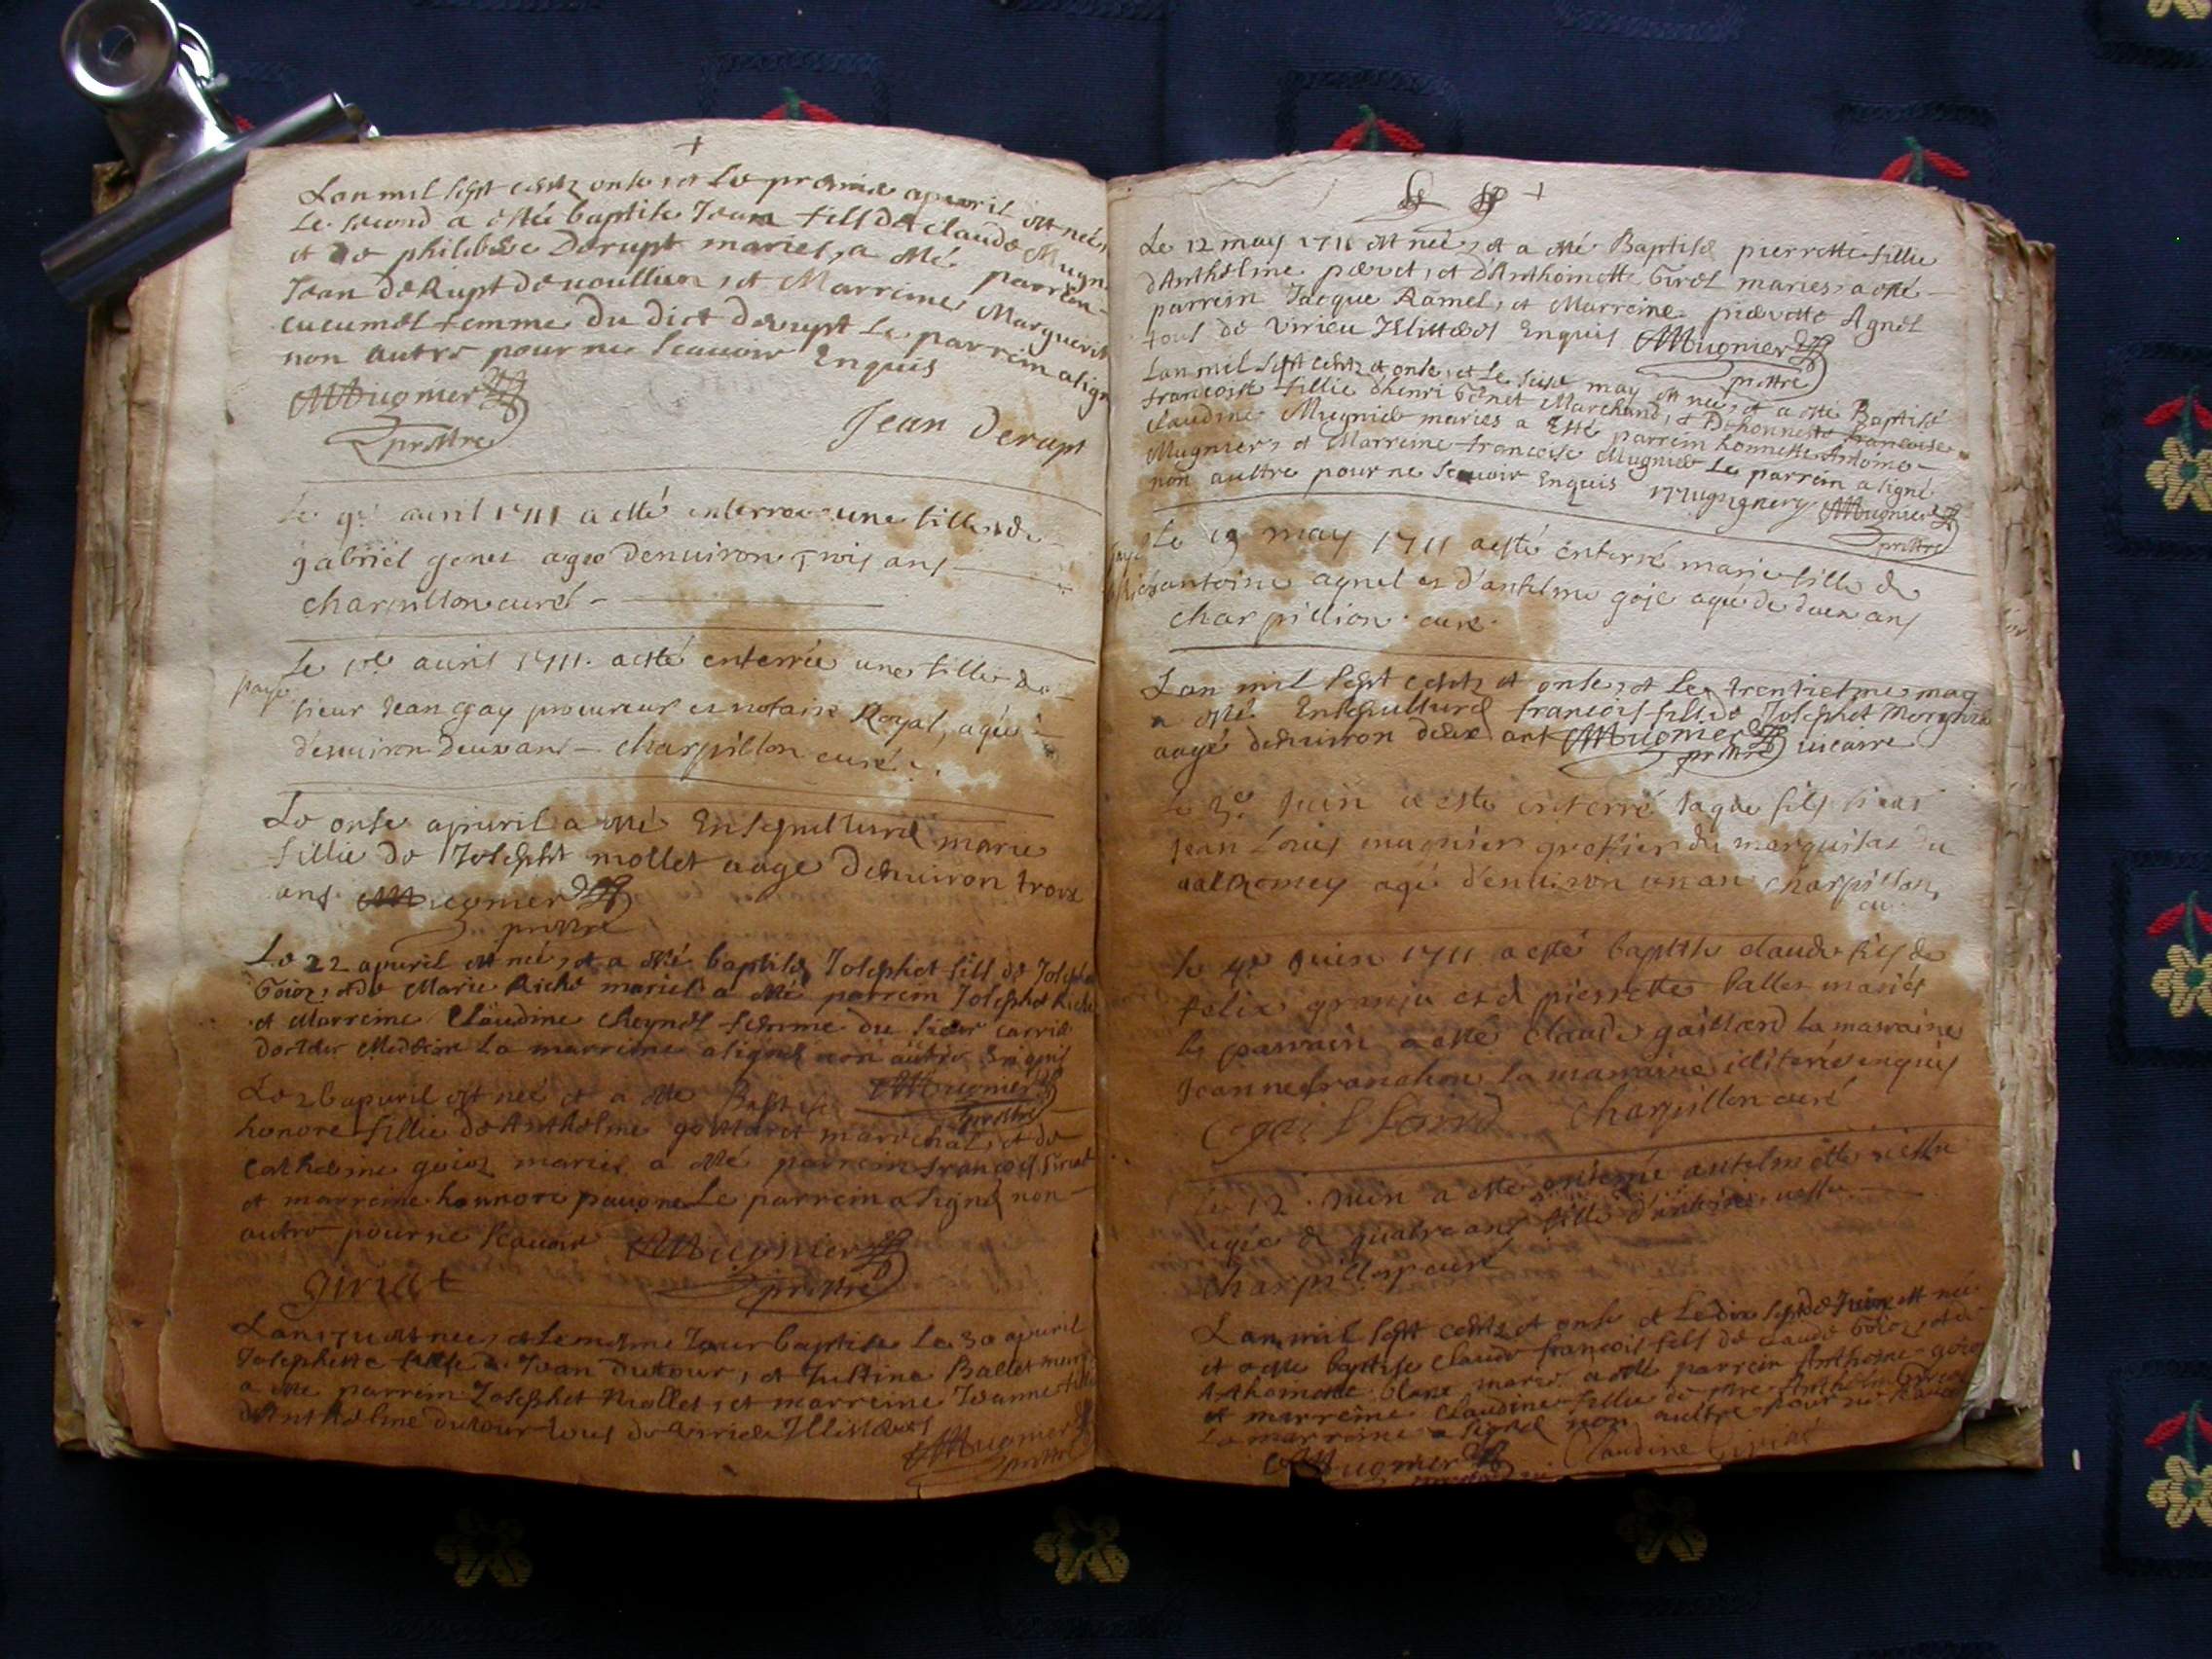 Lan mil sept centz onse, et Le premie apvril est né,
Le second a esté baptise Jean fils de Claude Mugn
et de philiberte Derupt maries, a esté parrein
Jean de Rupt de noullien, et Marreine Marguerit
cucumel femme du dict derupt Le parrein a sign
non autre pour ne scauoir Enquis
MMugnier
prestre
Jean Derupt
Le 9e auril 1711 a esté enterrée une fille de
gabriel genet agée denuiron trois ans
charpillon curé
Le 10e auril 1711. a esté enterrée une fille de
paye
sieur Jean gay procureur et notaire Royal, agée
denuiron deux ans charpillon curé
Le onse apvril a esté Ensepulturé marie
fillie de Josepht mollet aage denuiron trois
ans MMugnier
prestre
Le 22 apvril est né, et a esté baptisé Josephet fils de Joseph
Goioz, et de Marie Riche maries a esté parrein Josephet Riche
et Marreine Claudine Cheynel femme du sieur Carrié
docteur Medecin La marreine a signé non autre Enquis
MMugnier
prestre
Le 26 apvril est neé et a esté Baptise
honore fillie de Anthelme gottaret marechal, et de
Catherine goioz maries a esté parrein francois Giriat
et marreine honnore pauone Le parrein a signé non
autre pour ne scauoir MMugnier
prestre
giriat
Lan 1711 est nee, et le mesme Jour baptise Le 30 apvril
Josephette fillie de Jean dutour, et Justine Ballet maries
a esté parrein Josephet Mollet, et marreine Jeanne fillie
dAnthelme dutour tous de Virieu Illisteres
MMugnier
prestre
Le 12 may 1711 est neé, et a esté Baptisé pierrette fillie
dAnthelme pævet, et dAnthoinette Girel maries, a esté
parrein Jacque Ramel, et Marreine piærette Agnel
tous de virieu Illitteres Enquis MMugnier
prestre
Lan mil sept centz et onse, et Le seise may est neé, et a esté Baptisé
francoise fillie dhenri Genet Marchand, et Dehonneste francoise
Claudine Mugnier maries a Esté parrein honneste Antoine
Mugnier, et Marreine francoise Mugnier Le parrein a signé
non aultre pour ne scauoir Enquis Mugnier MMugnier
prestre
Le 19 may 1711 a esté enterré marie fille de
paye
antoine agnel et d'antelme goje agée de deux ans
charpillion curé
Lan mil sept centz et onse, et Le trentiesme may
a esté Ensepulturé francois fils de Josephet Morgnie
aagé denuiron deux ans MMugnier
prestre vicaire
Le 3e Juin a esté enterré Jaque fils sieur
Jean Louis mugnier grefier du marquisat du
valromey agé d'enuiron un an charpillon
cu
Le 4e Juin 1711 a esté baptisé claude fils de
felix granju et de pierrette ballet mariés
le parrain a esté claude gaillard la marraine
Jeanne franchon la marraine illiterée enquis
Gaillard charpillon curé
Le 12. Juin a esté enterrée antelmette vette
agée de quatre ans fille d'antoine vette
charpillon curé
Lan mil sept centz et onse et Le dix sept de Juin est né
et a esté baptise Claude francois fils de Claude Goioz, et de
Anthoinette blanc maries a esté parrein Anthoine goioz
et marreine Claudine fillie de Mre Anthelme Girias
La marreine a signé non aultre pour ne scauoir
MMugnier Claudine Girias